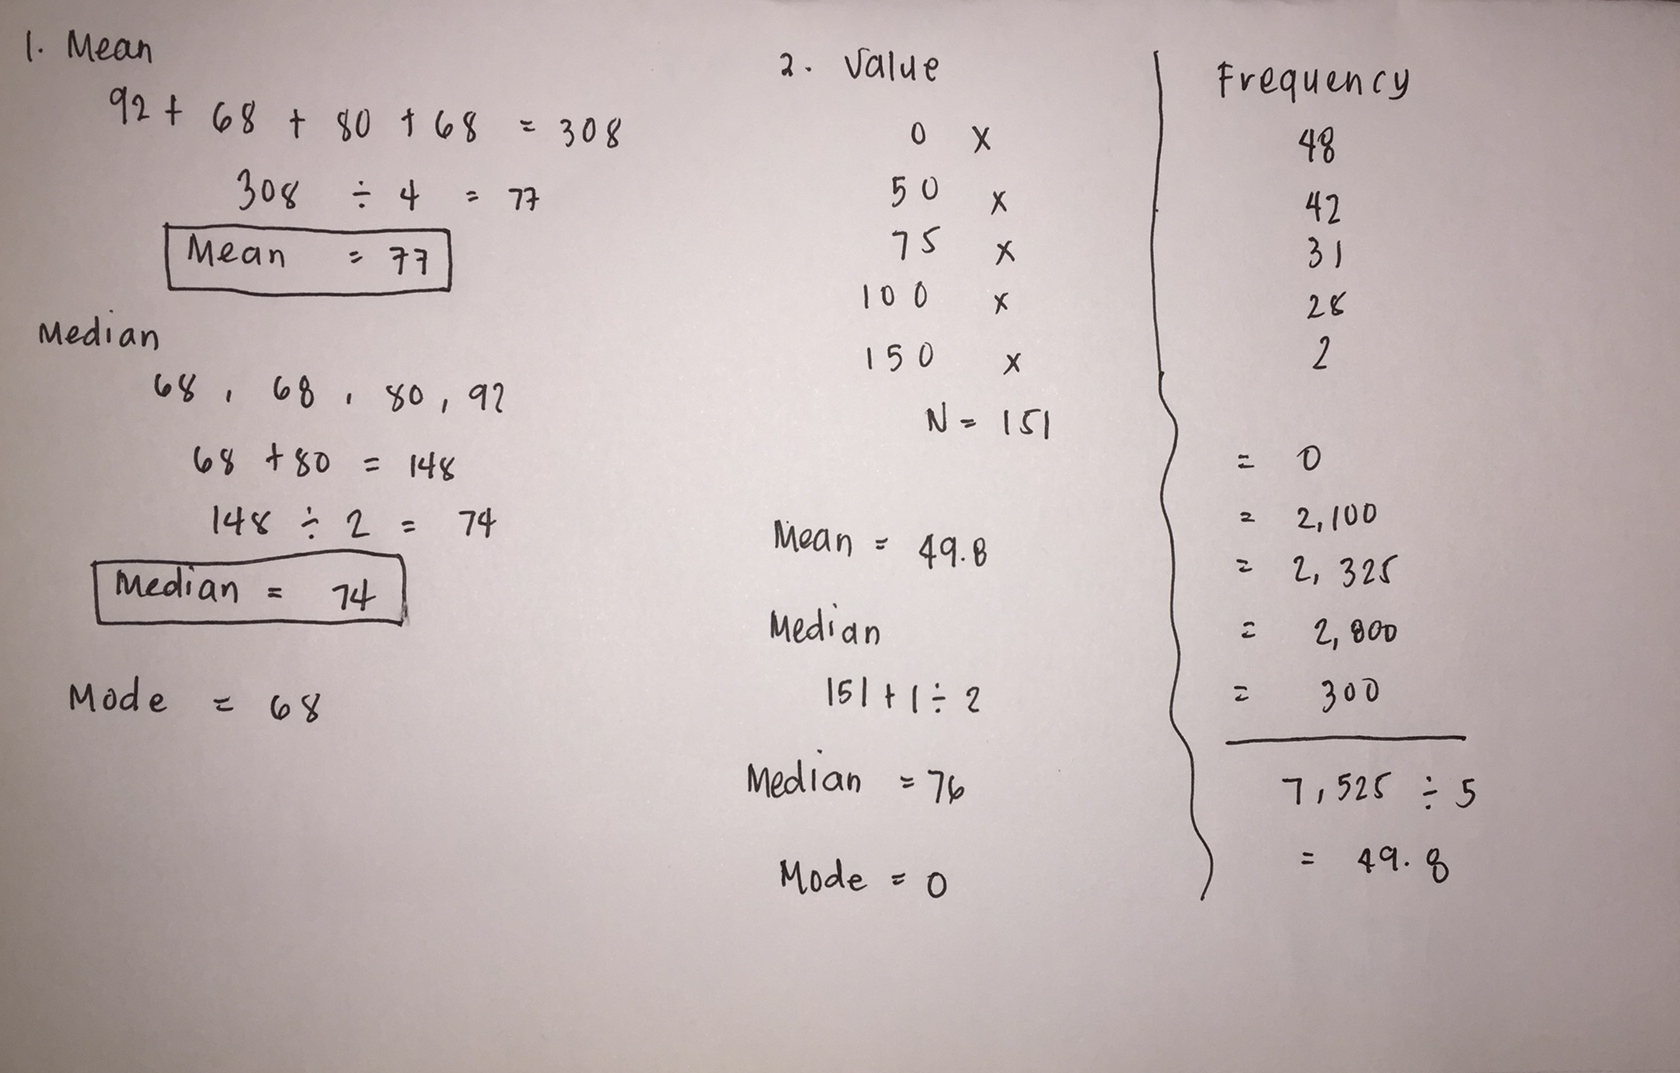 1. Mean
92 + 68 + 80 + 68 = 308
308 ÷ 4 = 77
Mean = 77
Median
68, 68, 80, 92
68 + 80 = 148
148 ÷ 2 = 74
Median = 74
Mode = 68
2. Value
0 x
50 x
75 x
100 x
150 x
N = 151
Mean = 49.8
Median
151 + 1 ÷ 2
Median = 76
Mode = 0
Frequency
48
42
31
28
2
= 0
= 2,100
= 2,325
= 2,800
= 300
7,525 ÷ 5
= 49.8